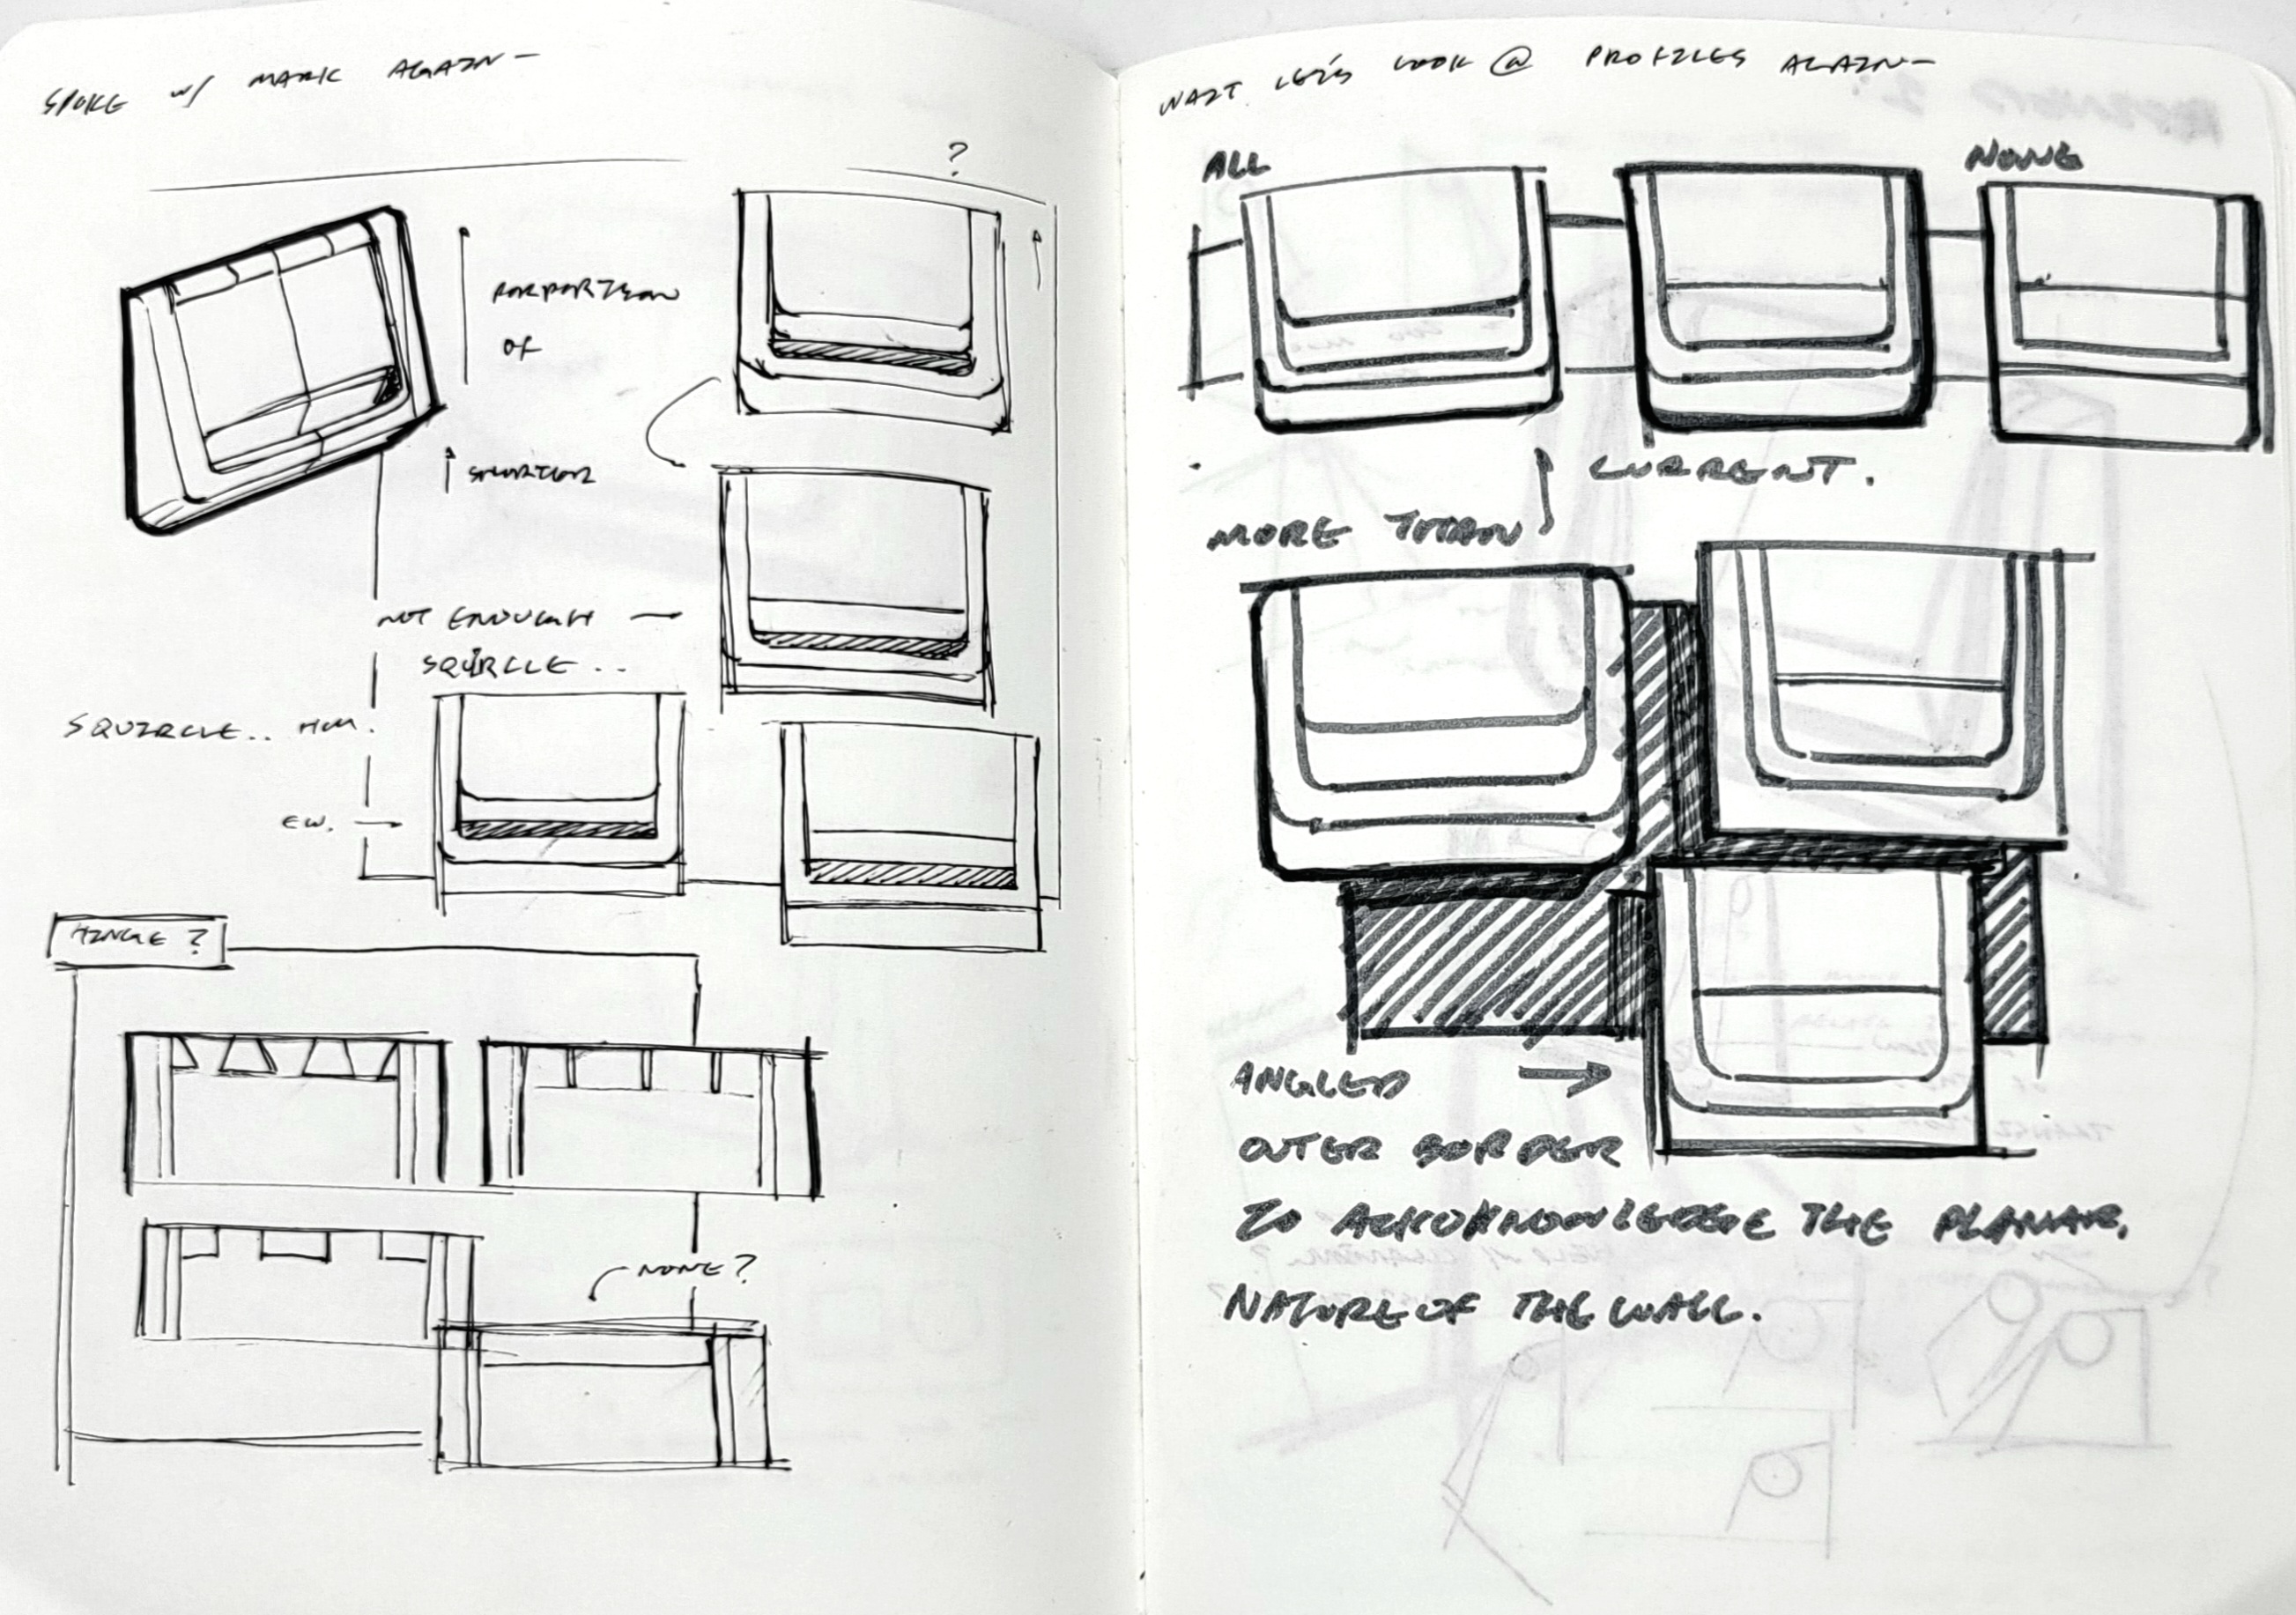 SPOKE W/ MARK AGAIN—
?
PORPORTION
OF
SHORTER
NOT ENOUGH —
SQUIRCLE ..
SQUIRCLE.. HM.
EW. →
HINGE ?
NONE?
WAIT LET'S LOOK @ PROFILES AGAIN—
ALL
NONE
CURRENT.
MORE THAN
ANGLED →
OUTER BORDER
TO THE PLANAR
NATURE OF THE WALL.